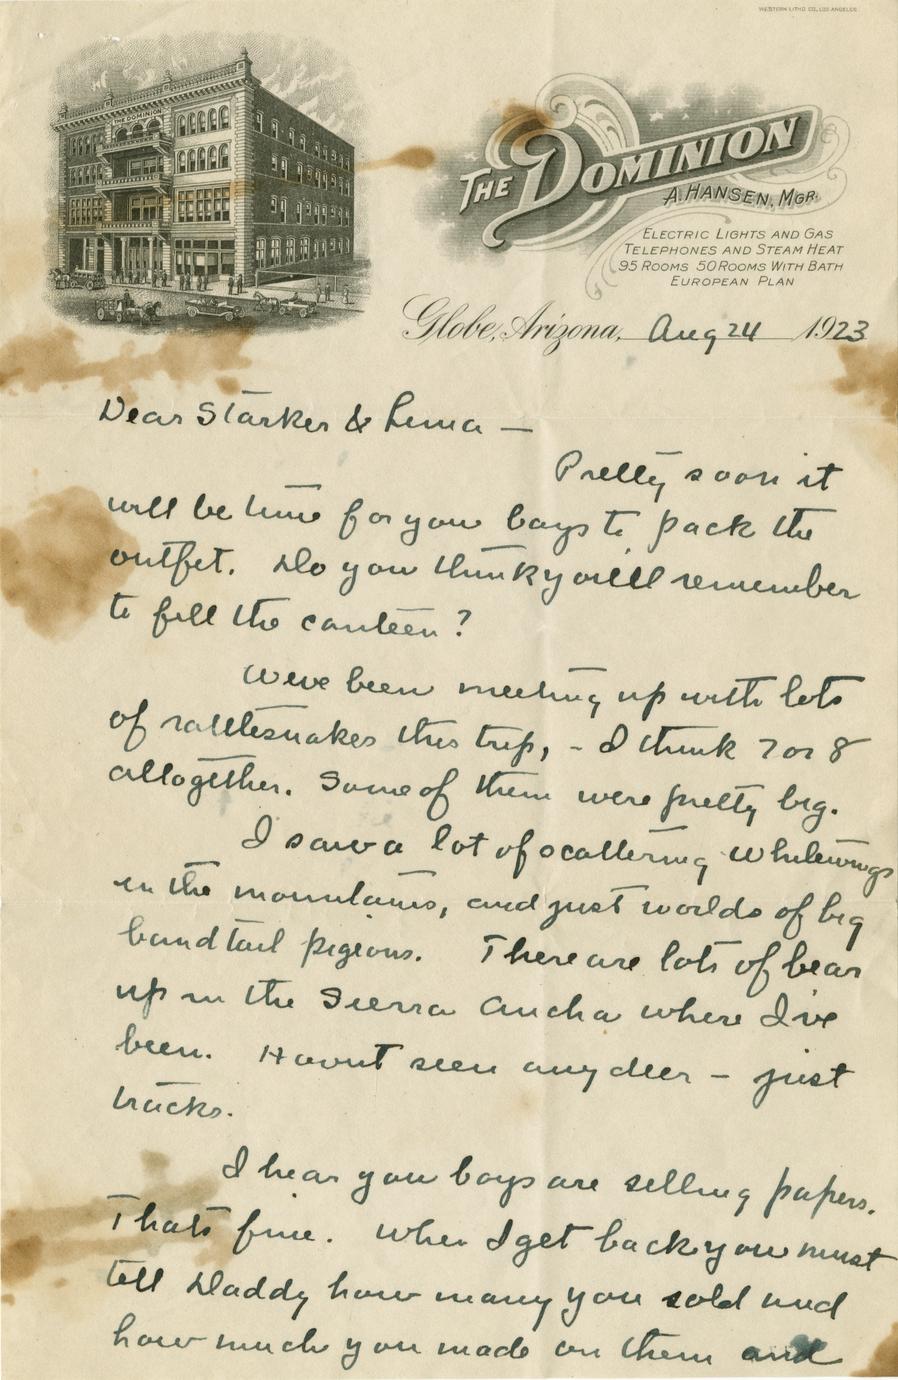 WESTERN LITHO CO. LOS ANGELES.
THE DOMINION
THE DOMINION
A. HANSEN, MGR.
ELECTRIC LIGHTS AND GAS
TELEPHONES AND STEAM HEAT
95 ROOMS 50 ROOMS WITH BATH
EUROPEAN PLAN
Globe, Arizona, Aug 24 1923
Dear Starker & Luna —
Pretty soon it
will be time for you boys to pack the
outfit. Do you think you'll remember
to fill the canteen?
We've been meeting up with lots
of rattlesnakes this trip, - I think 7 or 8
alltogether. Some of them were pretty big.
I saw a lot of scattering whitewings
in the mountains, and just worlds of big
bandtail pigeons. There are lots of bear
up in the Sierra Ancha where I've
been. Havnt seen any deer – just
tracks.
I hear you boys are selling papers.
Thats fine. When I get back you must
tell Daddy how many you sold and
how much you made on them and